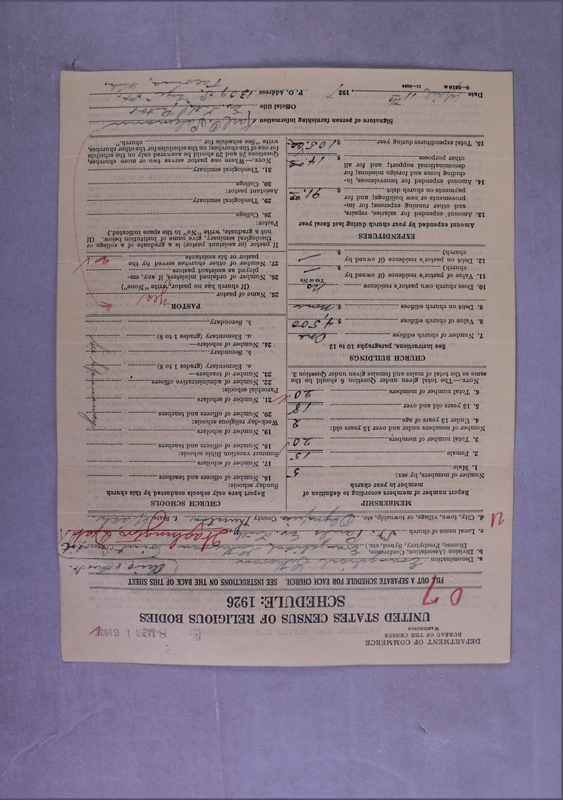 DEPARTMENT OF COMMERCE
BUREAU OF THE CENSUS
WASHINGTON
UNITED STATES CENSUS OF RELIGIOUS BODIES
SCHEDULE: 1926
FILL OUT A SEPARATE SCHEDULE FOR EACH CHURCH. SEE INSTRUCTIONS ON THE BACK OF THIS SHEET
a. Denomination Evangelical Lutheran
b. Division (Association, Conference, Diocese, Presbytery, Synod, etc.)
c. Local name of church St. Pauls Ev. Luth.
d. City, town, village, or township, etc. Olympia County Thurston State Wash
MEMBERSHIP
Report number of members according to definition of member in your church
Number of members, by sex:
1. Male 5
2. Female 15
3. Total number of members 20
Number of members under and over 13 years old:
4. Under 13 years of age 2
5. 13 years old and over 18
6. Total number of members 20
NOTE.—The total given under Question 6 should be the same as the total of males and females given under Question 3.
CHURCH BUILDINGS
See instructions, paragraphs 10 to 12
7. Number of church edifices One
8. Value of church edifices $ 4,500
9. Debt on church edifices $ none
10. Does church own pastor's residence No
Yes or No
11. Value of pastor's residence (if owned by church) $
12. Debt on pastor's residence (if owned by church) $
EXPENDITURES
Amount expended by your church during last fiscal year
13. Amount expended for salaries, repairs, and other running expenses; for improvements or new buildings; and for payments on church debt $ 91.
14. Amount expended for benevolence, including home and foreign missions; for denominational support; and for all other purposes $ 14.
15. Total expenditures during year $ 105.
CHURCH SCHOOLS
Report here only schools conducted by this church
Sunday schools:
16. Number of officers and teachers
17. Number of scholars
Summer vacation Bible schools:
18. Number of officers and teachers
19. Number of scholars
Week-day religious schools:
20. Number of officers and teachers
21. Number of scholars
Parochial schools:
22. Number of administrative officers
23. Number of teachers—
a. Elementary (grades 1 to 8)
b. Secondary
24. Number of scholars—
a. Elementary (grades 1 to 8)
b. Secondary
PASTOR
25. Name of pastor
(If church has no pastor, write "None")
26. Number of ordained ministers, if any, employed as assistant pastors
27. Number of other churches served by the pastor or his assistants
If pastor (or assistant pastor) is a graduate of a college or theological seminary, give name of institution below. (If not a graduate, write "No" in the space indicated.)
Pastor:
28. College
29. Theological seminary
Assistant pastor:
30. College
31. Theological seminary
NOTE.—Where one pastor serves two or more churches, Questions 28 and 29 should be answered only on the schedule for one of the churches; on the schedules for the other churches, write "See schedule for church."
Signature of person furnishing information
Official title Ev. Luth. Pastor
P. O. Address 1309 So.
Tacoma, Wash.
Date 1927